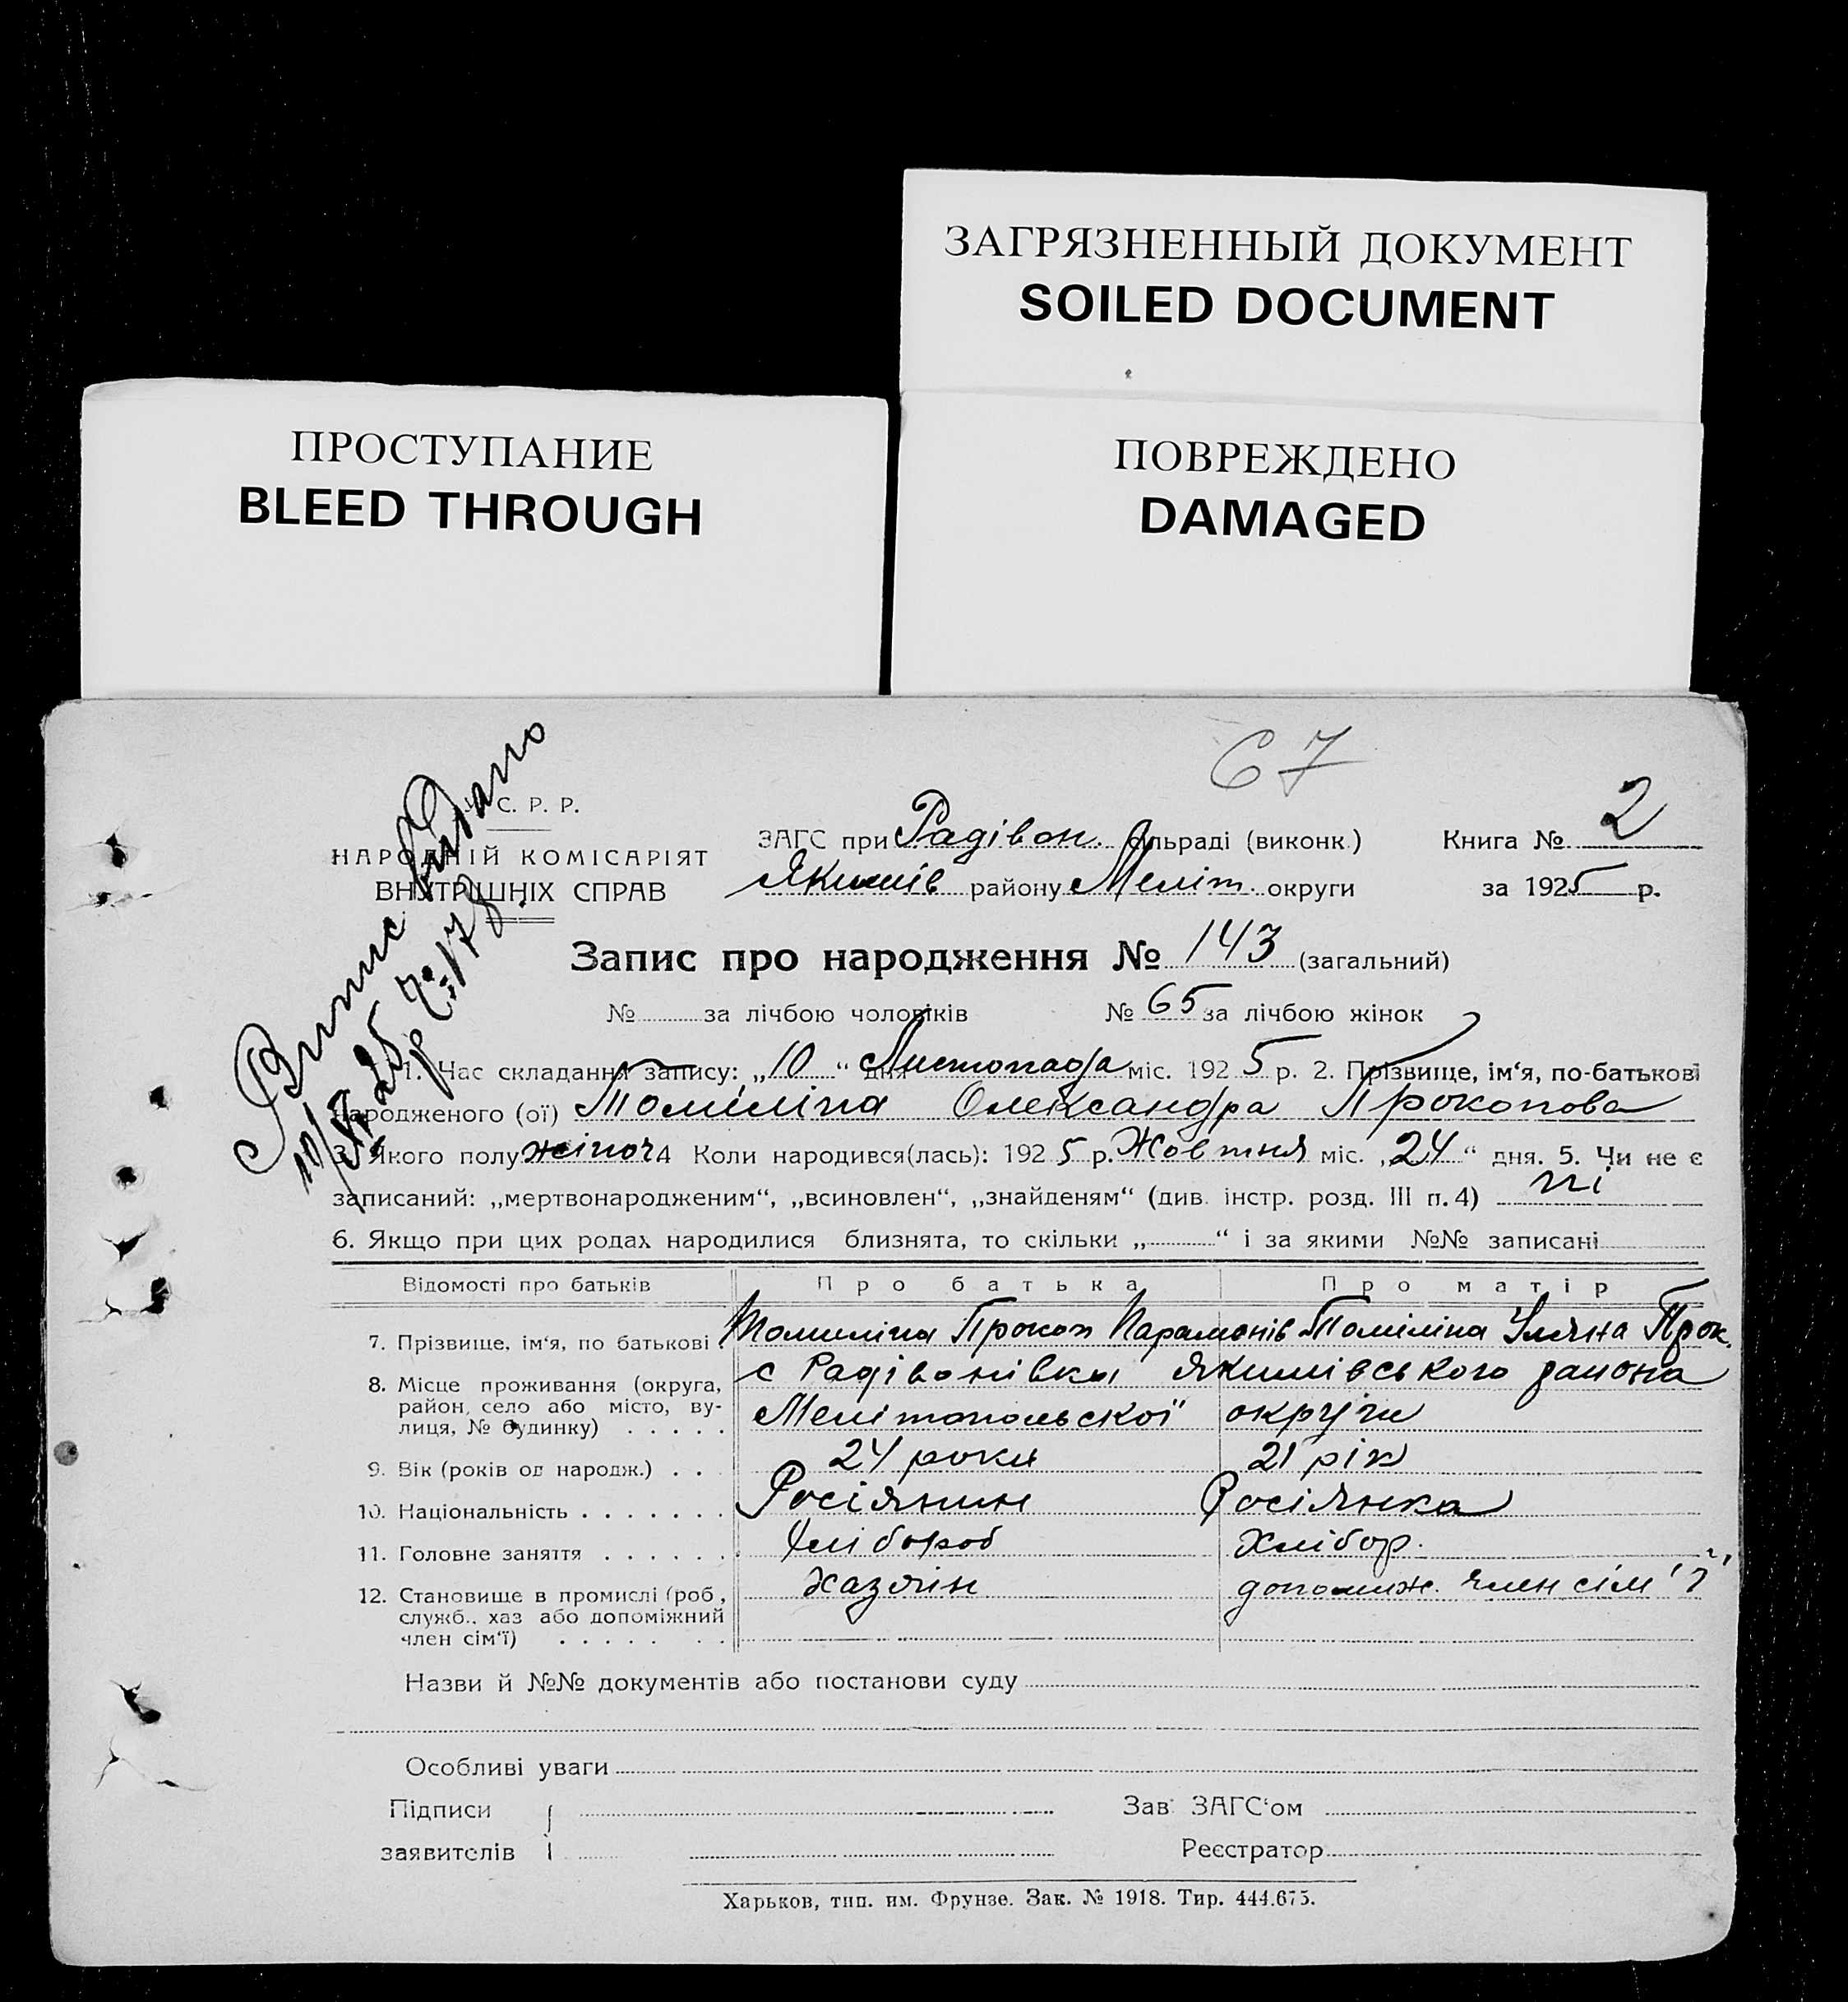 ЗАГРЯЗНЕННЫЙ ДОКУМЕНТ
SOILED DOCUMENT
ПРОСТУПАНИЕ
BLEED THROUGH
ПОВРЕЖДЕНО
DAMAGED
67
С. Р. Р.
НАРОДНІЙ КОМІСАРІЯТ
ВНУТРІШНІХ СПРАВ
Випис видано
ЗАГС при Радівон. сільраді (виконк.) Книга № 2
Якимів району Меліт. округи за 1925 р.
Запис про народження № 143 (загальний)
№ за лічбою чоловіків № 65 за лічбою жінок
1. Час складання запису: „10“ дня Листопада міс. 1925 р. 2. Прізвище, ім‘я, по-батькові
народженого (ої) Томіліна Олександра Прокопова
3. Якого полу жіноч 4 Коли народився(лась): 1925 р. Жовтня міс. „24“ дня. 5. Чи не є
записаний: „мертвонародженим“, „всиновлен“, „знайденям“ (див. інстр. розд. III п. 4) ні
6. Якщо при цих родах народилися близнята, то скільки „ “ і за якими №№ записані
Відомості про батьків Про батька Про матір
7. Прізвище, ім‘я, по батькові Томиліна Прокоп Парамонів Томіліна Уляна Прок.
8. Місце проживання (округа, с Радівонівки Якимівського района
район, село або місто, ву-
лиця, № будинку) Мелітопольскої округи
9. Вік (років од народж.) 24 роки 21 рік
10. Національність Росіянин Росіянка
11. Головне заняття Хлібороб Хлібор.
12. Становище в промислі (роб, хазяїн допоміж. член сім'ї
служб., хаз або допоміжний
член сім‘ї)
Назви й №№ документів або постанови суду
Особливі уваги
Підписи Зав. ЗАГС‘ом
заявителів Реєстратор
Харьков, тип. им. Фрунзе. Зак. № 1918. Тир. 444.675.